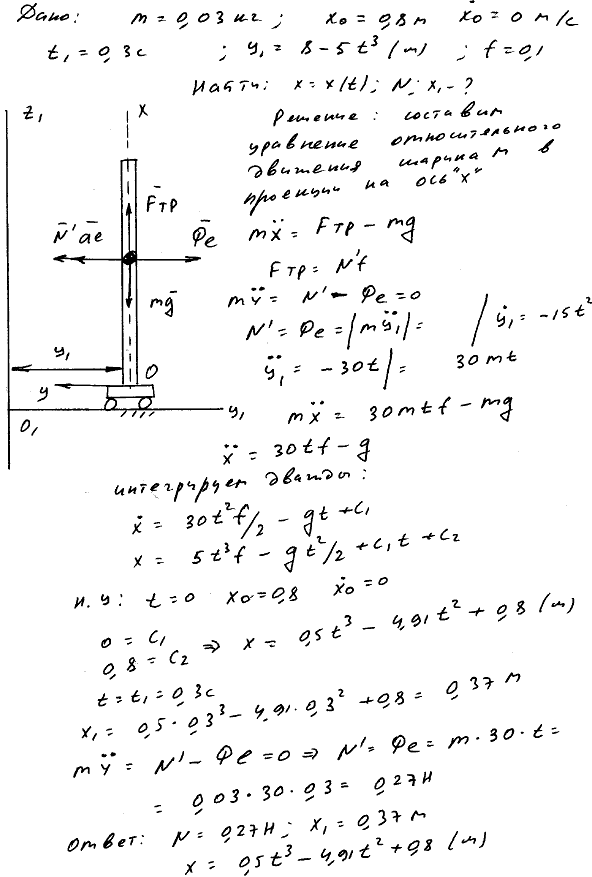 Дано: m = 0,03 кг ; x₀ = 0,8 м ẋ₀ = 0 м/с
t₁ = 0,3 с ; y₁ = 8 - 5t³ (м) ; f = 0,1
Найти: x = x(t) ; N ; x₁ - ?
Решение: составим
уравнение относительного
движения шарика М в
проекции на ось "x"
z₁ x
F̄тр
N̄' āe Φ̄e
mḡ
y₁
O
y
y₁
O₁
mẍ = Fтр - mg
Fтр = N'f
mÿ = N' - Φe = 0
N' = Φe = |mÿ₁| = / ẏ₁ = -15t²
ÿ₁ = -30t | = 30mt
mẍ = 30mtf - mg
ẍ = 30tf - g
интегрируем дважды:
ẋ = 30t²f/2 - gt + C₁
x = 5t³f - gt²/2 + C₁t + C₂
н.у: t = 0 x₀ = 0,8 ẋ₀ = 0
0 = C₁
0,8 = C₂ ⇒ x = 0,5t³ - 4,91t² + 0,8 (м)
t = t₁ = 0,3 с
x₁ = 0,5·0,3³ - 4,91·0,3² + 0,8 = 0,37 м
mÿ = N' - Φe = 0 ⇒ N' = Φe = m·30·t =
= 0,03·30·0,3 = 0,27Н
Ответ: N = 0,27Н ; x₁ = 0,37 м
x = 0,5t³ - 4,91t² + 0,8 (м)